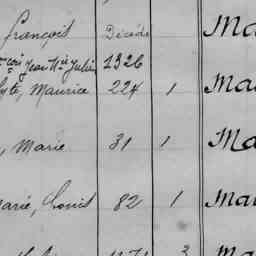 françois Décédé Ma
Jean Julien 1326
Maurice 224 1 Ma
, Marie 31 1 Ma
arie, Louis 82 1 Ma
3 Ma